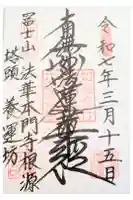 令和七年三月十五日
南無妙法蓮華経
冨士山 法華本門寺根源
塔頭 養運坊